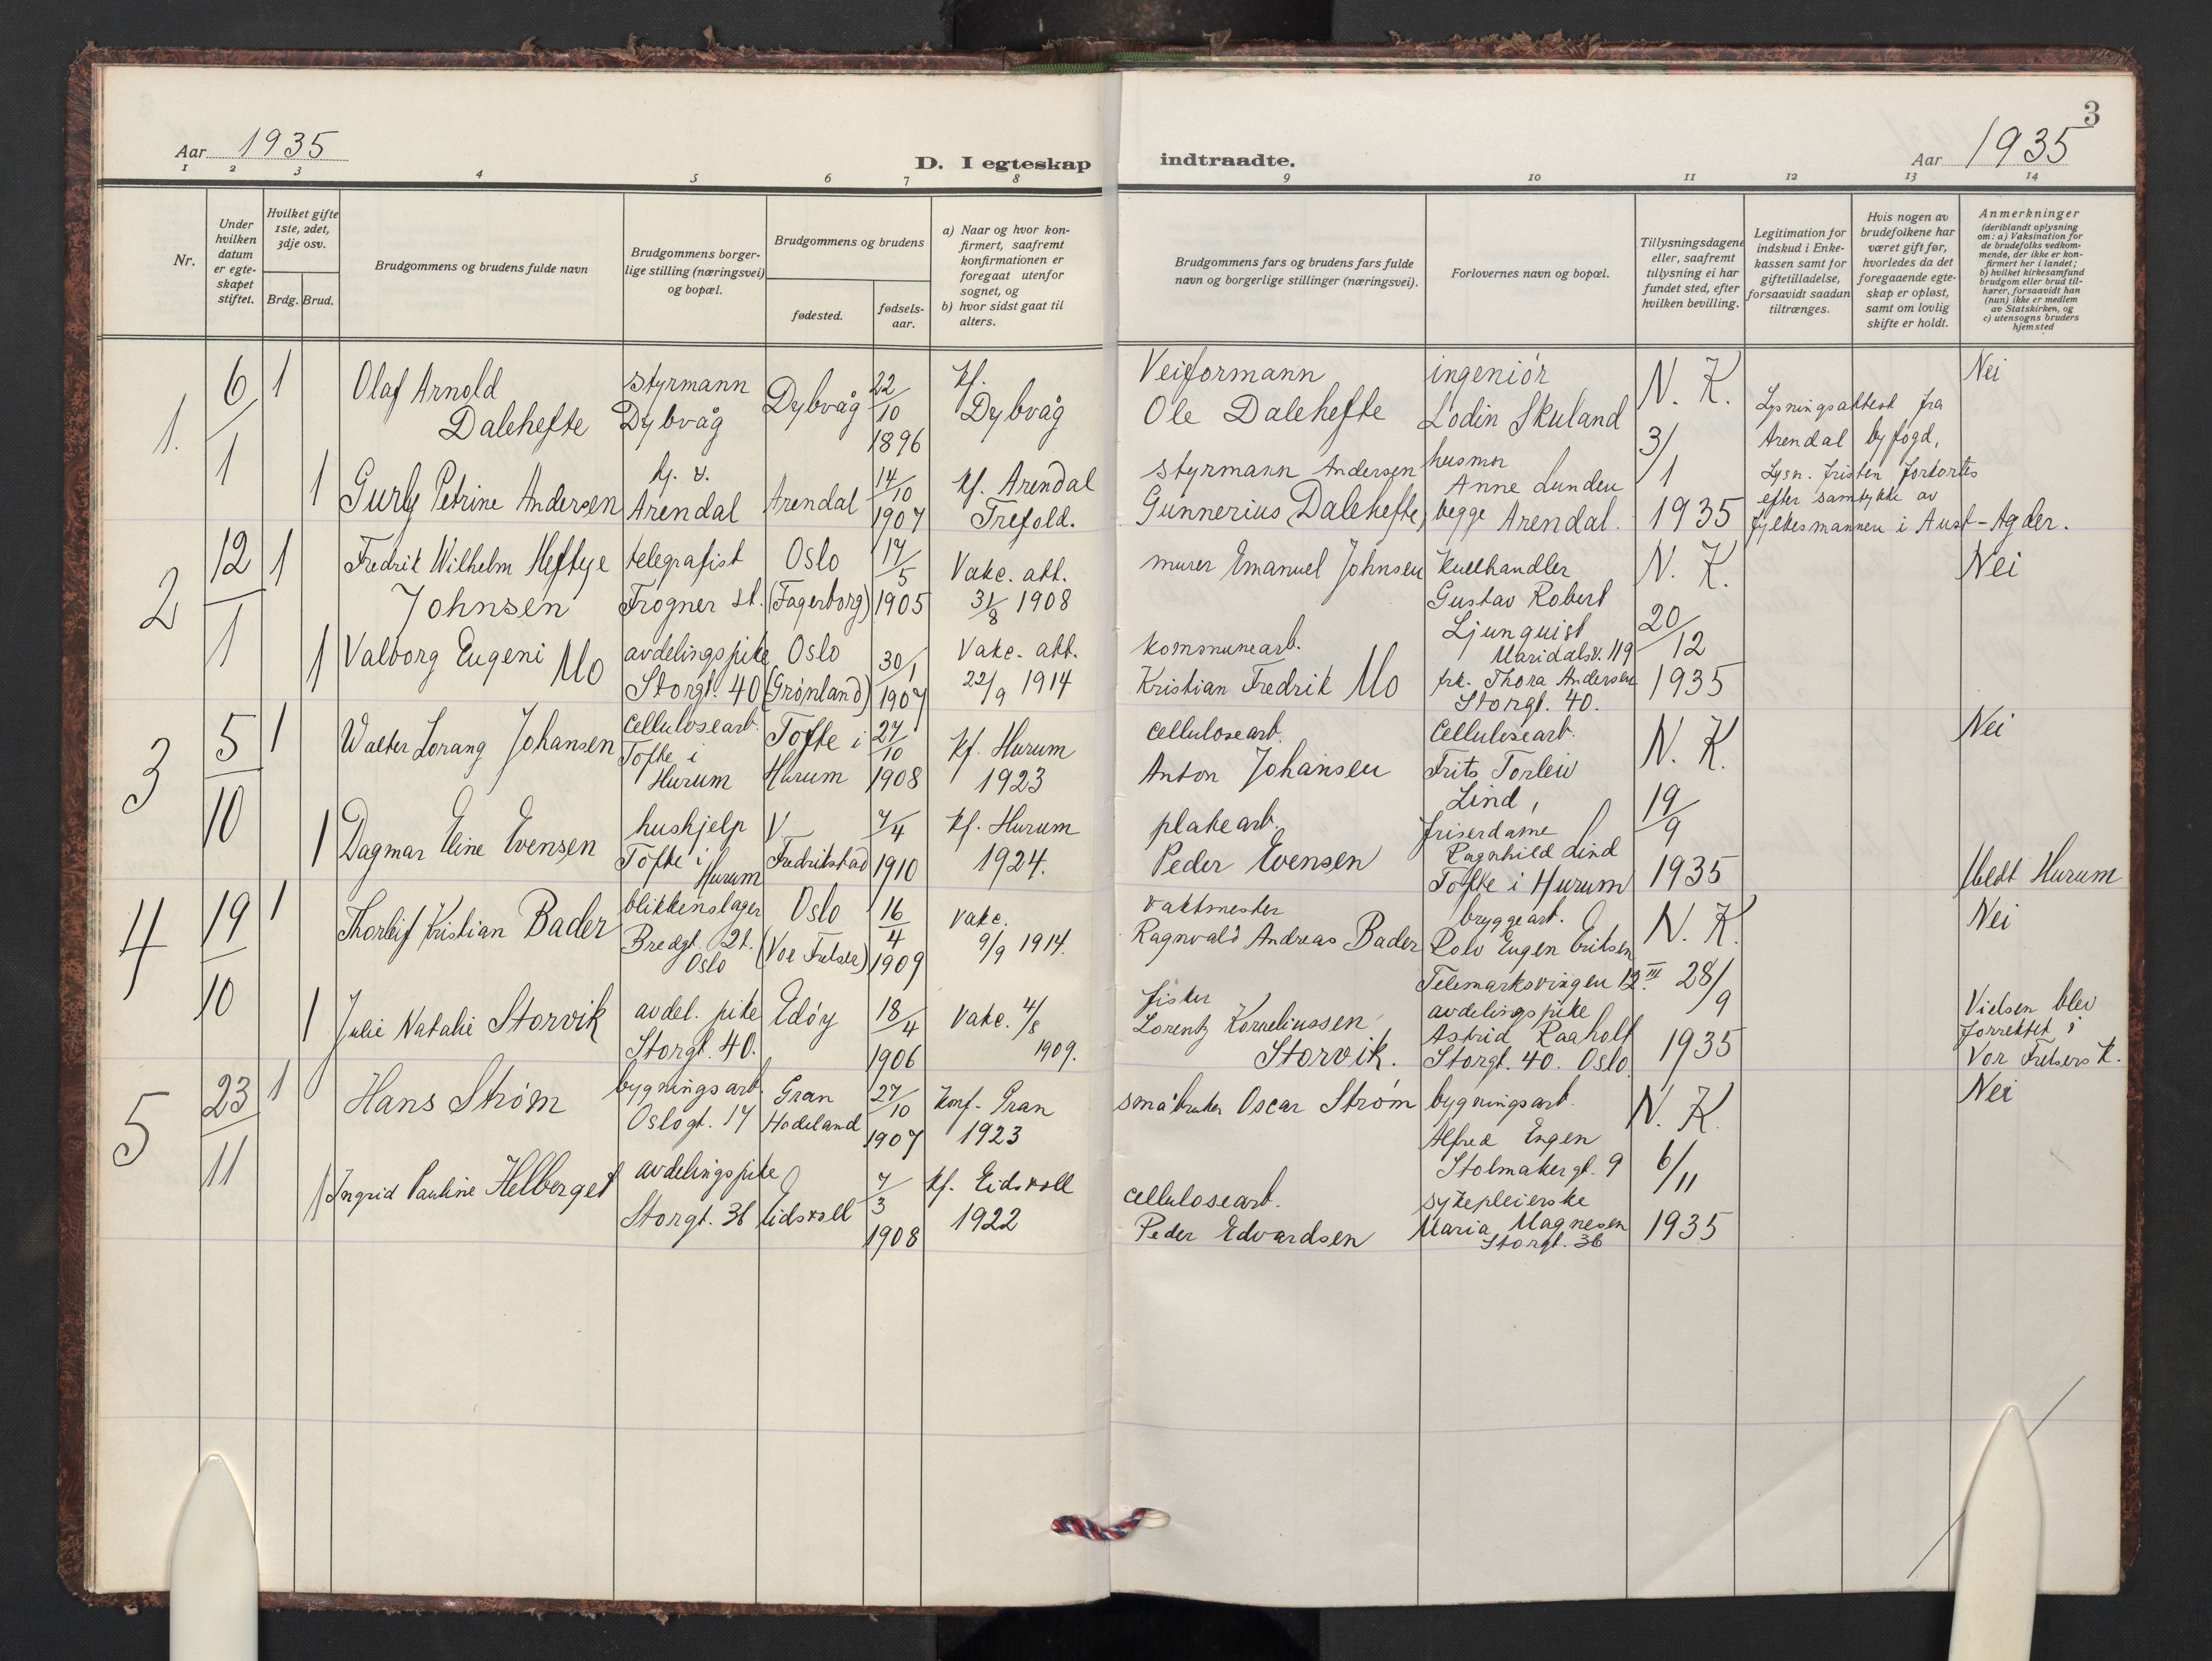 3
Aar 1935
D. I egteskap indtraadte.
Aar 1935
1 2 3 4 5 6 7 8 9 10 11 12 13 14
Nr.
Under
hvilken
datum
er egte-
skapet
stiftet.
Hvilket gifte
1ste, 2det,
3dje osv.
Brdg. Brud.
Brudgommens og brudens fulde navn
Brudgommens borger-
lige stilling (næringsvei)
og bopæl.
Brudgommens og brudens
fødested.
fødsels-
aar.
a) Naar og hvor kon-
firmert, saafremt
konfirmationen er
foregaat utenfor
sognet, og
b) hvor sidst gaat til
alters.
Brudgommens fars og brudens fars fulde
navn og borgerlige stillinger (næringsvei).
Forlovernes navn og bopæl.
Tillysningsdagene
eller, saafremt
tillysning ei har
fundet sted, efter
hvilken bevilling.
Legitimation for
indskud i Enke-
kassen samt for
giftetilladelse,
forsaavidt saadan
tiltrænges.
Hvis nogen av
brudefolkene har
været gift før,
hvorledes da det
foregaaende egte-
skap er opløst,
samt om lovlig
skifte er holdt.
Anmerkninger
(deriblandt oplysning
om: a) Vaksination for
de brudefolks vedkom-
mende, der ikke er kon-
firmert her i landet;
b) hvilket kirkesamfund
brudgom eller brud til-
hører, forsaavidt han
(hun) ikke er medlem
av Statskirken, og
c) utensogns bruders
hjemsted
1.
6/1
1
Olaf Arnold
Dalehefte
styrmann
Dybvåg
Dybvåg
22/10
1896
kf.
Dybvåg
Veiformann
Ole Dalehefte
ingeniör
Lodin Skuland
N. K.
3/1
1935
Lysningsattest fra
Arendal byfogd,
Lysn. fristen forkortes
efter samtykke av
fylkesmannen i Aust-Agder.
Nei
1
Gurly Petrine Andersen
Arendal
Arendal
14/10
1907
kf. Arendal
Trefold.
styrmann Andersen
Gunnerius Dalehefte,
husmor
Anne Lunden
begge Arendal.
2
12/1
1
Fredrik Wilhelm Heftye
Johnsen
telegrafist
Frogner st.
Oslo
(Fagerborg)
17/5
1905
Vakc. att.
31/8 1908
murer Emanuel Johnsen
Kullhandler
Gustav Robert
Ljunquist
Maridalsv. 119
N. K.
20/12
1935
Nei
1
Valborg Eugeni Mo
avdelingspike
Storgt. 40
Oslo
(Grønland)
30/1
1907
Vakc. att.
22/9 1914
kommunearb.
Kristian Fredrik Mo
frk. Thora Andersen
Storgt. 40.
3
5/10
1
Walter Lorang Johansen
cellulosearb.
Tofte i
Hurum
Tofte i
Hurum
27/10
1908
kf. Hurum
1923
cellulosearb.
Anton Johansen
Cellulosearb.
Frits Torleiv
Lind,
N. K.
19/9
1935
Nei
1
Dagmar Eline Evensen
hushjelp
Tofte i
Hurum
V
Fredrikstad
7/4
1910
kf. Hurum
1924.
platearb.
Peder Evensen
friserdame
Ragnhild Lind
Tofte i Hurum
Medt Hurum
4
19/10
1
Thorleif Kristian Bader
blikkenslager
Bredgt. 21.
Oslo
Oslo
(Vor Frelser)
16/4
1909
vakc.
9/9 1914.
vaktmester
Ragnvald Andreas Bader
bryggearb.
Rolv Eugen Eriksen
Telemarksvingen 12 III
N. K.
28/9
1935
Nei
1
Julie Natalie Storvik
avdel. pike
Storgt. 40.
Edøy
18/4
1906
Vakc. 4/8
1909.
fisker
Lorentz Korneliussen
Storvik.
avdelingspike
Astrid Raaholt
Storgt. 40. Oslo.
Vielsen blev
forrettet i
Vor Frelsers K.
5
23/11
1
Hans Strøm
bygningsarb.
Oslogt. 17
Gran
Hadeland
27/10
1907
Konf. Gran
1923
småbruker Oscar Strøm
bygningsarb.
Alfred Engen
Stolmakergt. 9
N. K.
6/11
1935
Nei
1
Ingrid Pauline Helberget
avdelingspike
Storgt. 36
Eidsvoll
7/3
1908
kf. Eidsvoll
1922
cellulosearb.
Peder Edvardsen
sykepleierske
Maria Magnesen
Storgt. 36